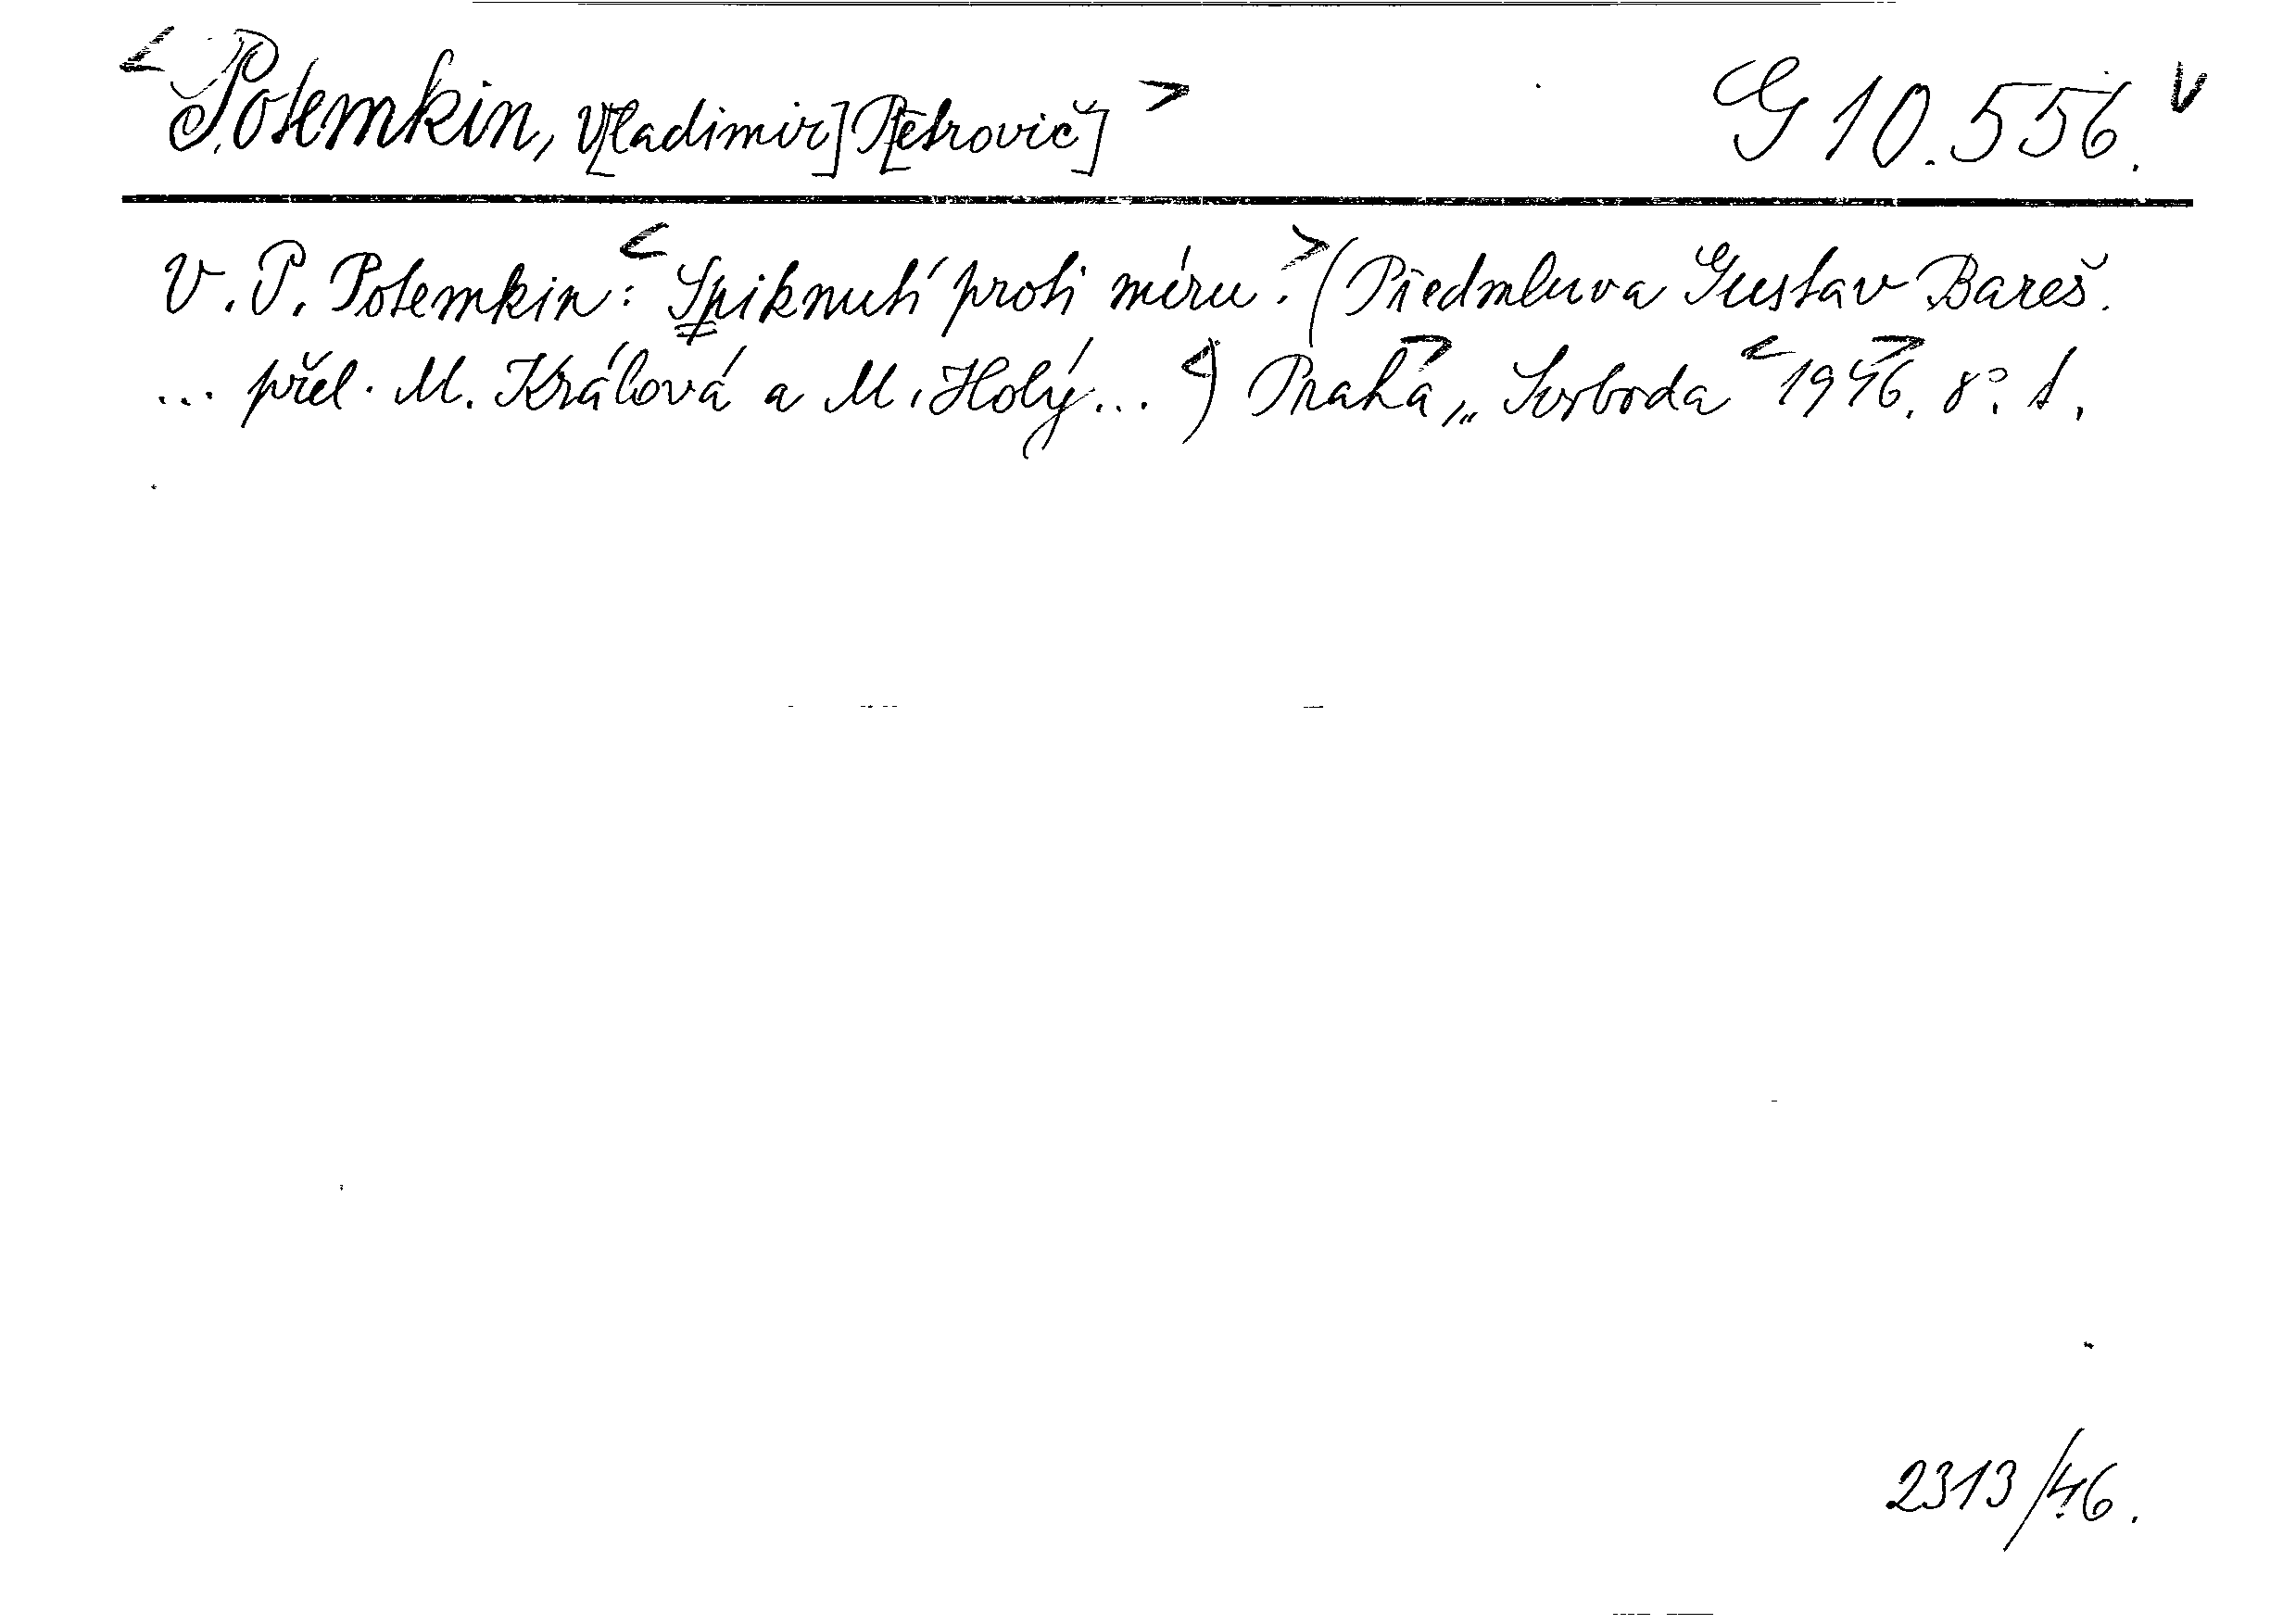 < Potemkin, V[ladimir] P[etrovič] > G 10.556. v
V. P. Potemkin: < Spiknutí proti míru. > (Předmluva Gustav Bareš.
... přel. M. Králová a M. Holý... ) < Praha > „Svoboda“ < 1946 >. 8°. 1.
2313/46.